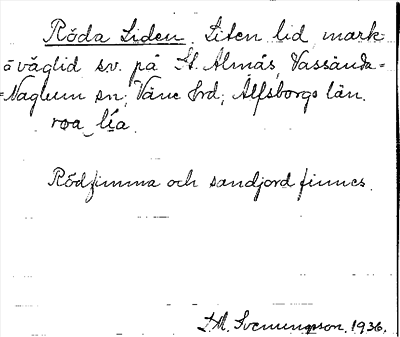 Röda Liden. Liten lid, mark
o väglid sv. på St. Almås, Vassända-
-Naglum sn; Väne hrd; Älfsborgs län.
roa lia.
Rödjimma och sandjord finnes.
F.M. Svenungson, 1936.